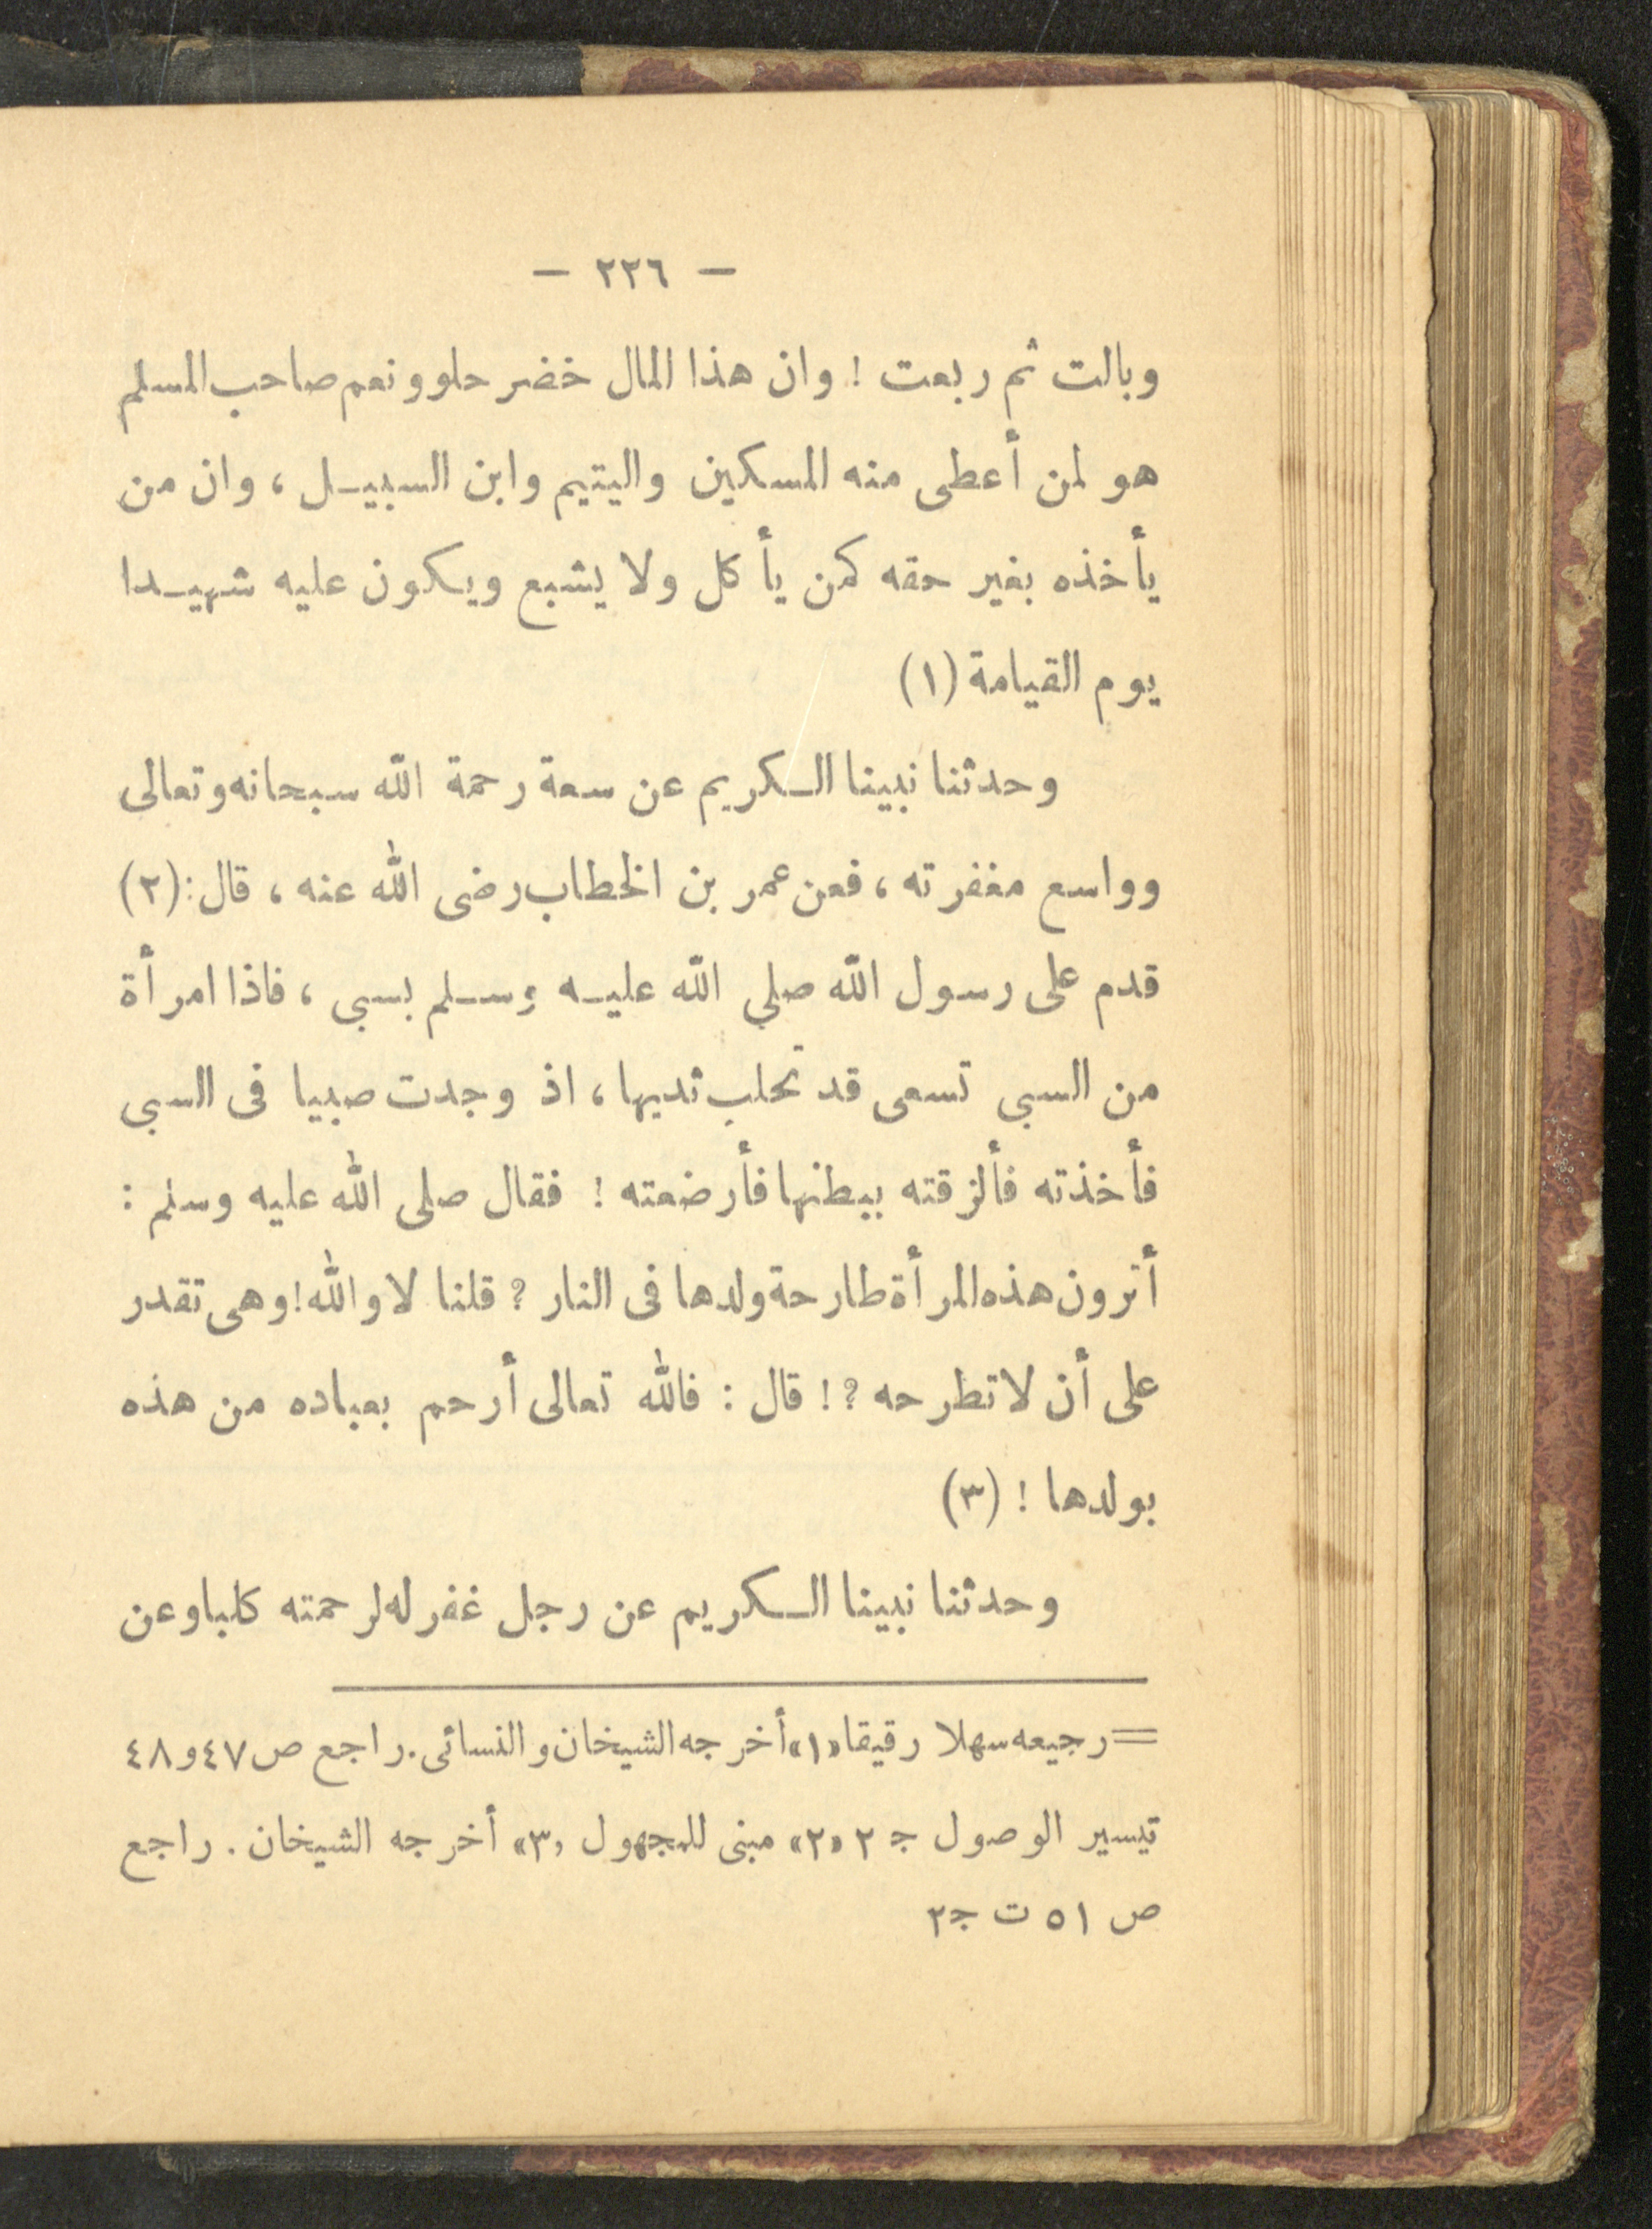 — ٢٢٦ —
وبالت ثم ربعت ! وان هذا المال خضر حلو ونعم صاحب المسلم
هو لمن أعطى منه المسكين واليتيم وابن السبيل ، وان من
يأخذه بغير حقه كمن يأكل ولا يشبع ويكون عليه شهيدا
يوم القيامة (١)
وحدثنا نبينا الكريم عن سعة رحمة الله سبحانه وتعالى
وواسع مغفرته ، فعن عمر بن الخطاب رضى الله عنه ، قال : (٢)
قدم على رسول الله صلي الله عليه وسلم بسبى ، فاذا امرأة
من السبى تسعى قد تحلب ثديها ، اذ وجدت صبيا فى السبى
فأخذته فألزقته ببطنها فأرضعته ! فقال صلى الله عليه وسلم :
أترون هذه المرأة طارحة ولدها فى النار ؟ قلنا لا والله ! وهى تقدر
على أن لا تطرحه ؟ ! قال : فالله تعالى أرحم بعباده من هذه
بولدها ! (٣)
وحدثنا نبينا الكريم عن رجل غفر له لرحمته كلبا وعن
= رجيعه سهلا رقيقا «١» أخرجه الشيخان والنسائى . راجع ص ٤٧ و ٤٨
تيسير الوصول ج ٢ «٢» مبنى للمجهول «٣» أخرجه الشيخان . راجع
ص ٥١ ت ج ٢